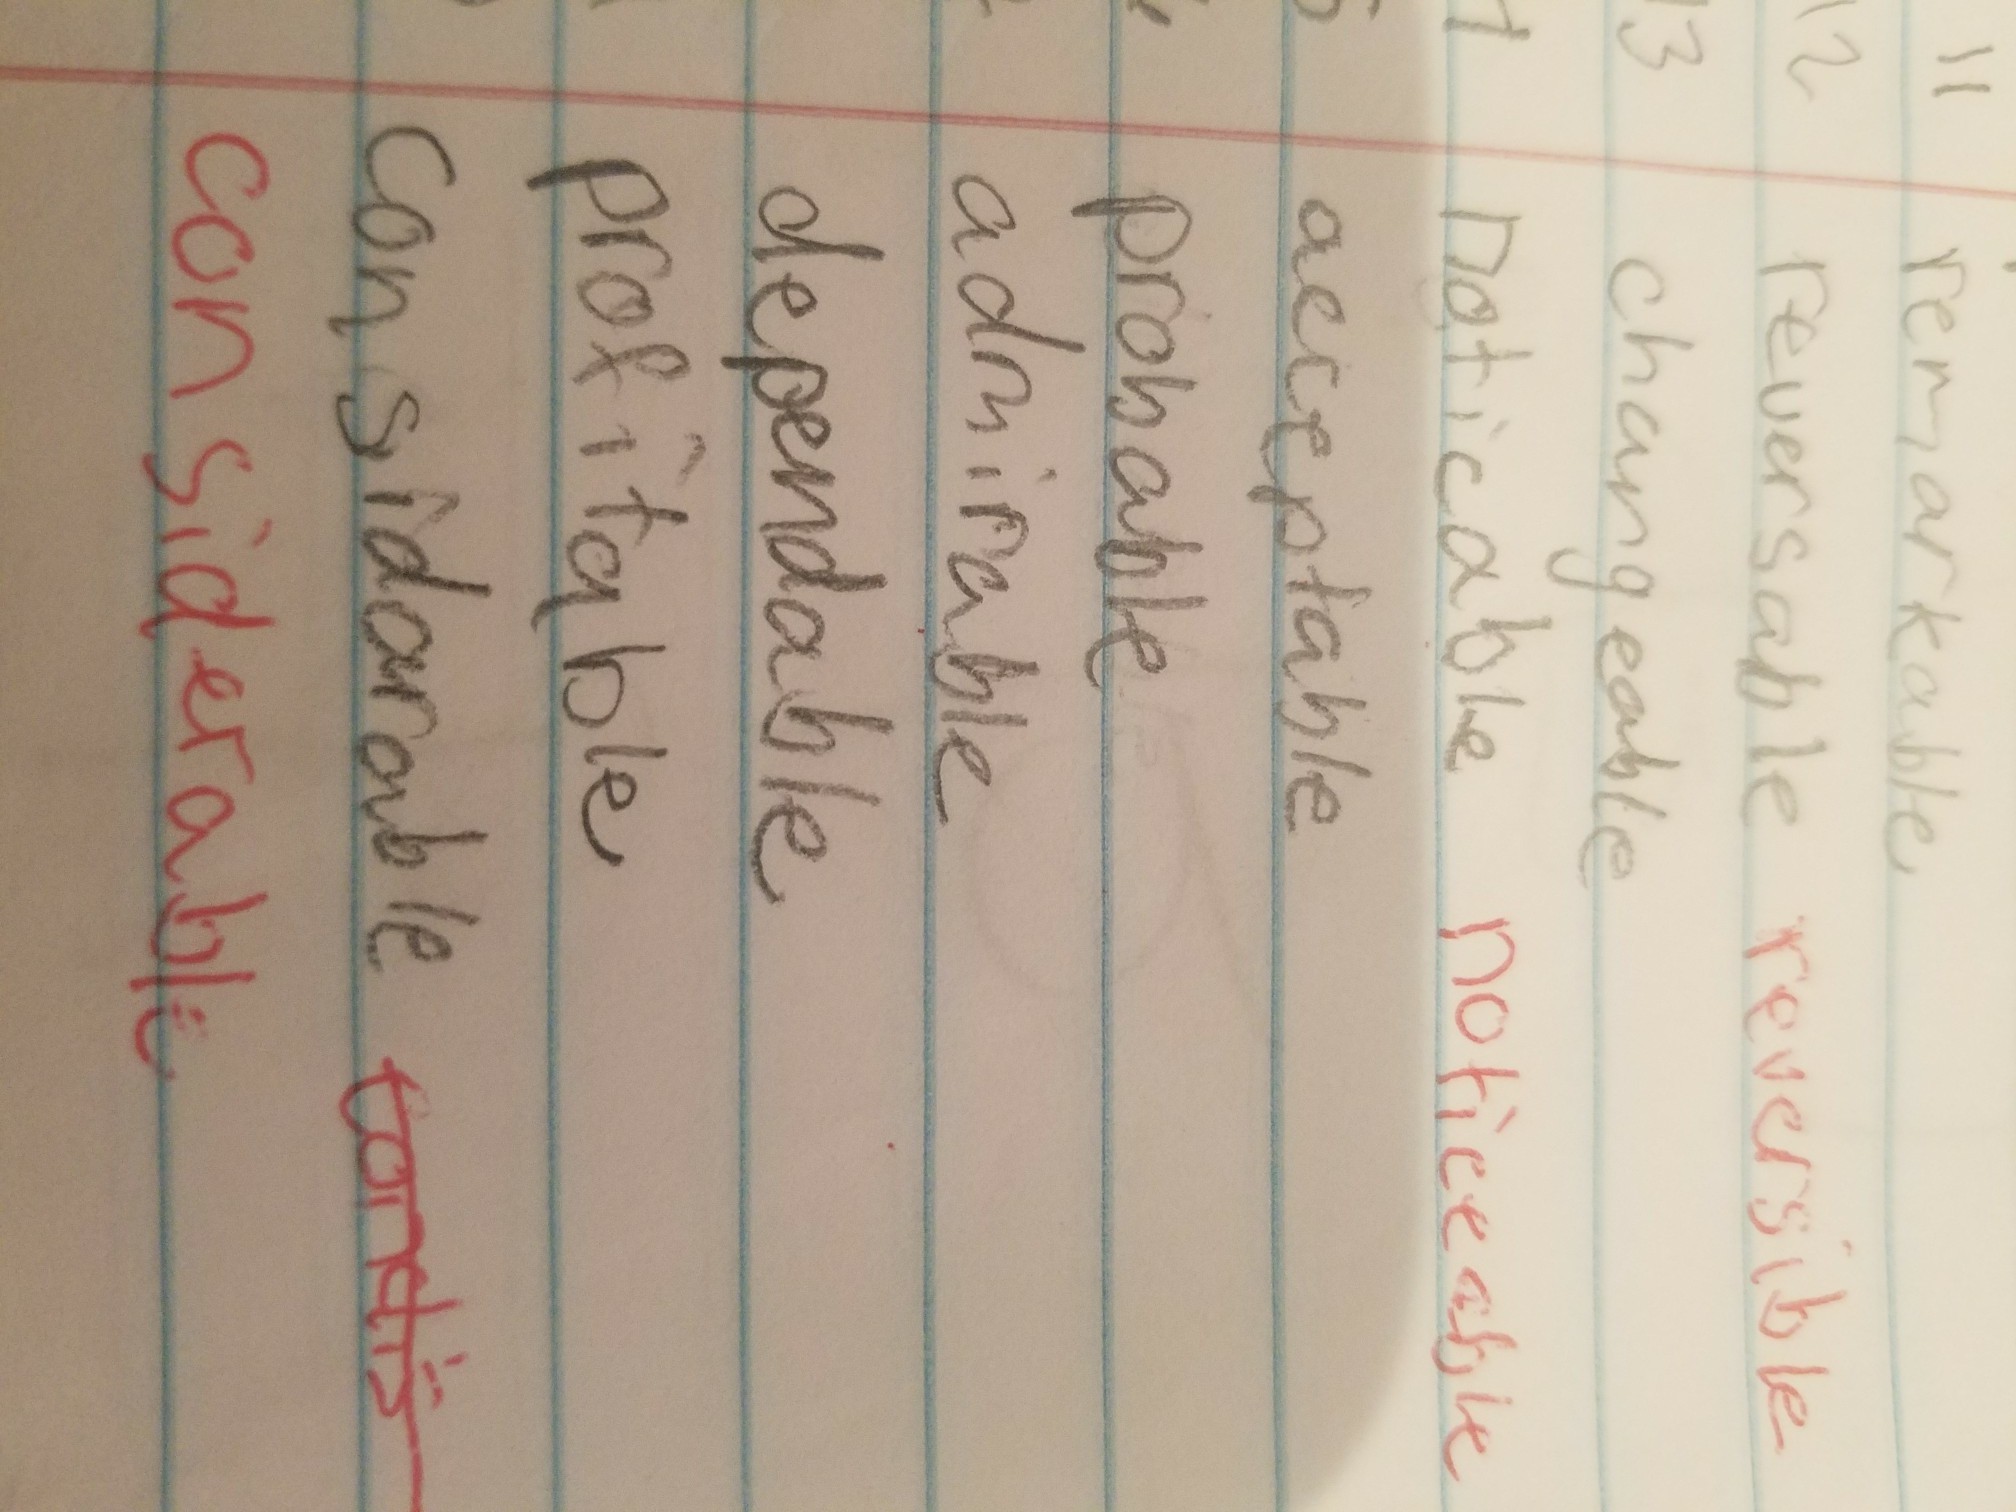 11 remarkable
12 reversable reversible
13 changeable
noticable noticeable
acceptable
probable
admirable
dependable
profitable
considarable
considerable